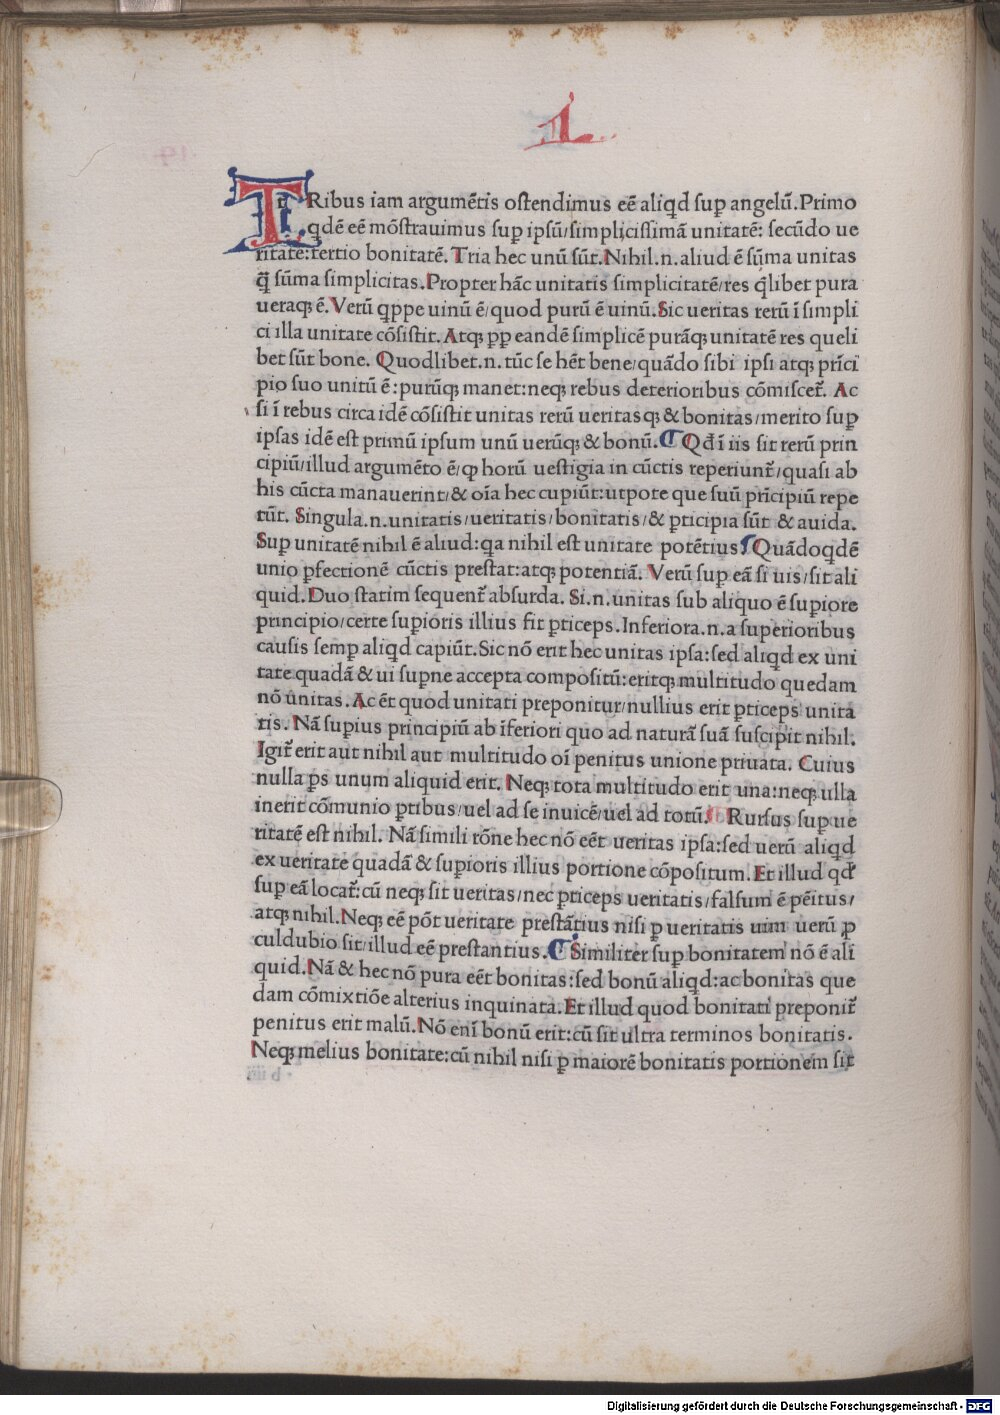 L
TRibus iam argumētis ostendimus eē aliqd sup̱ angelū. Primo
qdē eē mōstrauimus sup̱ ipsū/simplicissimā unitatē: secūdo ue
ritatē: tertio bonitatē. Tria hec unū sūt. Nihil.n.aliud ē sūma unitas
q̄̄ sūma simplicitas. Propter hāc unitatis simplicitatē/res q̄libet pura
ueraqꝫ ē. Verū qppe uinū ē/quod purū ē uinū. Sic ueritas rerū ī simpli
ci illa unitate cōsistit. Atqꝫ p̱p̱ eandē simplicē purāqꝫ unitatē res queli
bet sūt bone. Quodlibet.n.tūc se hēt bene/quādo sibi ipsi atqꝫ prīci
pio suo unitū ē: purūqꝫ manet: neqꝫ rebus deterioribus cōmiscet᷑. Ac
si ī rebus circa idē cōsistit unitas rerū ueritasqꝫ & bonitas/merito sup̱
ipsas idē est primū ipsum unū uerūqꝫ & bonū. Qđ ī iis sit rerū prin
cipiū/illud argumēto ē/ꝙ horū uestigia in cūctis reperiunt᷑/quasi ab
his cūcta manauerint/& oīa hec cupiūt: utpote que suū prīcipiū repe
tūt. Singula.n.unitatis/ueritatis/bonitatis/& p̱ticipia sūt & auida.
Sup̱ unitatē nihil ē aliud: qa nihil est unitate potētius Quādoqdē
unio p̱fectionē cūctis prestat: atqꝫ potentiā. Verū sup̱ eā si uis/sit ali
quid. Duo statim sequent᷑ absurda. Si.n.unitas sub aliquo ē sup̱iore
principio/certe sup̱ioris illius fit p̱ticeps. Inferiora.n.a superioribus
causis semp̱ aliqd capiūt. Sic nō erit hec unitas ipsa: sed aliqd ex uni
tate quadā & ui sup̱ne accepta compositū: eritqꝫ multitudo quedam
nō unitas. Ac ēt quod unitati preponitur/nullius erit p̱ticeps unita
tis. Nā sup̱ius principiū ab īferiori quo ad naturā suā suscipit nihil.
Igit᷑ erit aut nihil aut multitudo oī penitus unione priuata. Cuius
nulla p̄s unum aliquid erit. Neqꝫ tota multitudo erit una: neqꝫ ulla
inerit cōmunio p̱tibus/uel ad se inuicē/uel ad totū. Rursus sup̱ ue
ritatē est nihil. Nā simili rōne hec nō eēt ueritas ipsa: sed uerū aliqd
ex ueritate quadā & sup̱ioris illius portione cōpositum. Et illud qđ
sup̱ eā locat᷑: cū neqꝫ sit ueritas/nec p̱ticeps ueritatis/falsum ē pēitus/
atqꝫ nihil. Neqꝫ eē pōt ueritate prestātius nisi p̱ ueritatis uim uerū ꝓ
culdubio sit/illud eē prestantius. Similiter sup̱ bonitatem nō ē ali
quid. Nā & hec nō pura eēt bonitas: sed bonū aliqd: ac bonitas que
dam cōmixtiōe alterius inquinata. Et illud quod bonitati preponit᷑
penitus erit malū. Nō enī bonū erit: cū sit ultra terminos bonitatis.
Neqꝫ melius bonitate: cū nihil nisi p̱ maiorē bonitatis portionem sit
Digitalisierung gefördert durch die Deutsche Forschungsgemeinschaft - DFG